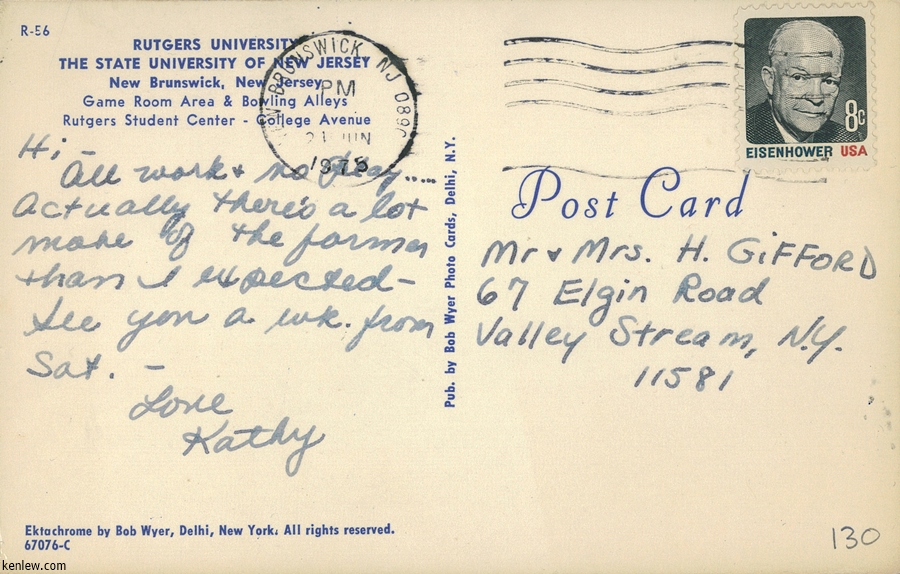 R-56
RUTGERS UNIVERSITY
THE STATE UNIVERSITY OF NEW JERSEY
New Brunswick, New Jersey
Game Room Area & Bowling Alleys
Rutgers Student Center - College Avenue
BRUNSWICK NJ 089
PM
21 JUN
197
8c
EISENHOWER USA
Hi -
All work + no play.....
Actually there's a lot
more of the former
than I expected -
See you a wk. from
Sat. -
Love
Kathy
Pub. by Bob Wyer Photo Cards, Delhi, N.Y.
Post Card
Mr + Mrs. H. GiFFORD
67 Elgin Road
Valley Stream, N.Y.
11581
Ektachrome by Bob Wyer, Delhi, New York. All rights reserved.
67076-C
130
kenlew.com